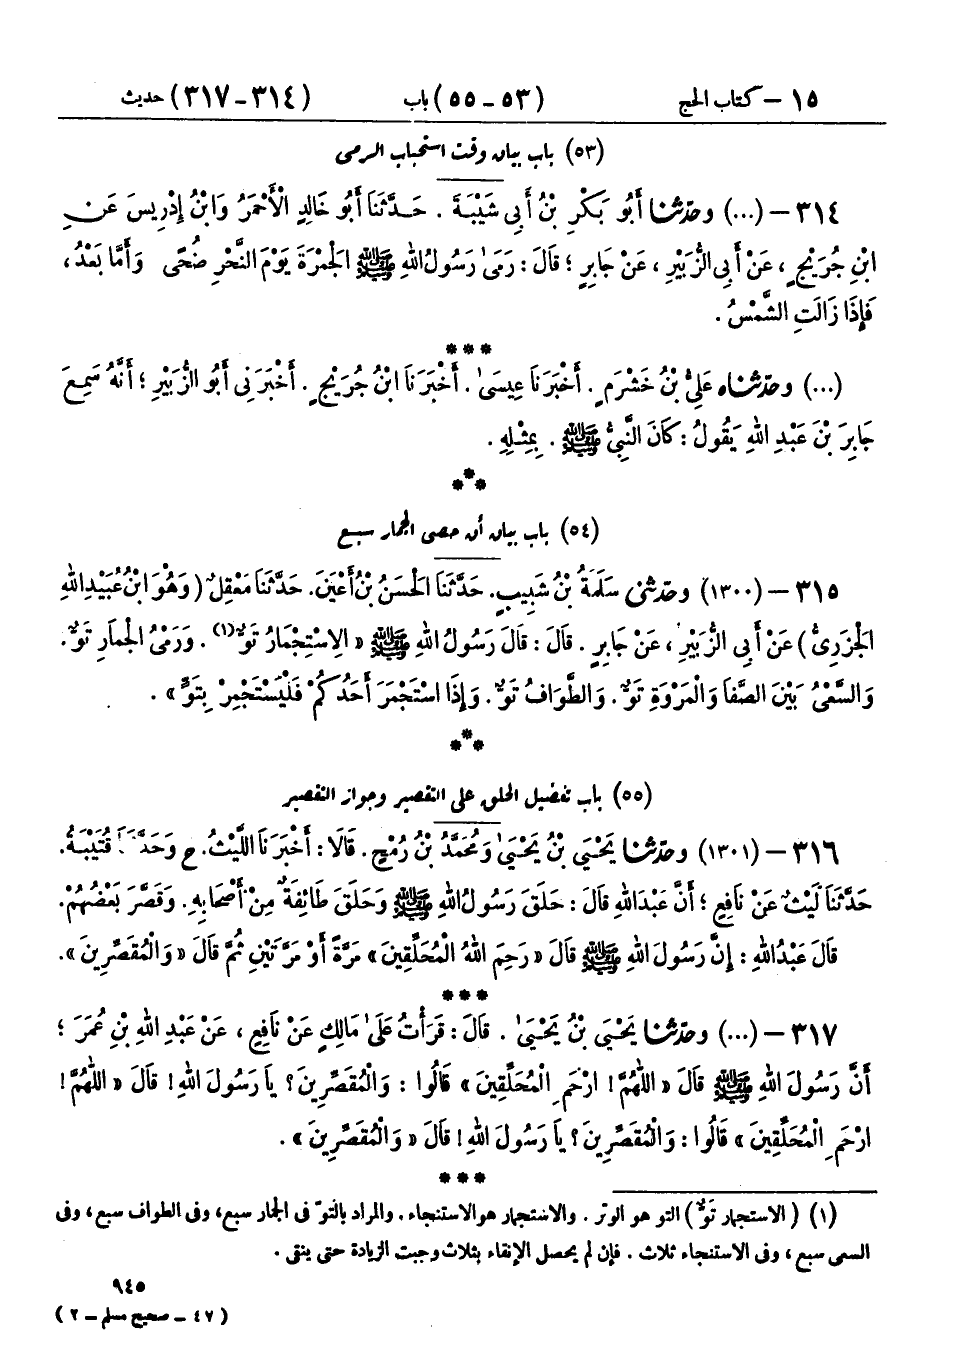 ١٥ – كتاب الحج (٥٣ – ٥٥) باب (٣١٤ – ٣١٧) حديث
(٥٣) باب بيان وقت استحباب الرمى
٣١٤ – (...) وحدثنا أَبُو بَكْرِ بْنُ أَبِي شَيْبَةَ . حَدَّثَنَا أَبُو خَالِدٍ الْأَحْمَرُ وَابْنُ إِدْرِيسَ عَنِ
ابْنِ جُرَيْجٍ ، عَنْ أَبِي الزُّبَيْرِ ، عَنْ جَابِرٍ ؛ قَالَ : رَمَىٰ رَسُولُ اللهِ ﷺ الْجَمْرَةَ يَوْمَ النَّحْرِ ضُحًى وَأَمَّا بَعْدُ ،
فَإِذَا زَالَتِ الشَّمْسُ .
***
(...) وحدثناه عَلِيُّ بْنُ خَشْرَمٍ . أَخْبَرَنَا عِيسَىٰ . أَخْبَرَنَا ابْنُ جُرَيْجٍ . أَخْبَرَنِى أَبُو الزُّبَيْرِ ؛ أَنَّهُ سَمِعَ
جَابِرَ بْنَ عَبْدِ اللهِ يَقُولُ : كَانَ النَّبِيُّ ﷺ . بِمِثْلِهِ .
***
(٥٤) باب بيان أن حصى الجمار سبع
٣١٥ – (١٣٠٠) وحدثنى سَلَمَةُ بْنُ شَبِيبٍ . حَدَّثَنَا الْحَسَنُ بْنُ أَعْيَنَ . حَدَّثَنَا مَعْقِلٌ ( وَهُوَ ابْنُ عُبَيْدِ اللهِ
الْجَزَرِيُّ ) عَنْ أَبِي الزُّبَيْرِ ، عَنْ جَابِرٍ . قَالَ : قَالَ رَسُولُ اللهِ ﷺ « الِاسْتِجْمَارُ تَوٌّ(١) . وَرَمْيُ الْجِمَارِ تَوٌّ .
وَالسَّعْيُ بَيْنَ الصَّفَا وَالْمَرْوَةِ تَوٌّ . وَالطَّوَافُ تَوٌّ . وَإِذَا اسْتَجْمَرَ أَحَدُكُمْ فَلْيَسْتَجْمِرْ بِتَوٍّ » .
***
(٥٥) باب تفضيل الحلق على التقصير وجواز التقصير
٣١٦ – (١٣٠١) وحدثنا يَحْيَىٰ بْنُ يَحْيَىٰ وَمُحَمَّدُ بْنُ رُمْحٍ . قَالَا : أَخْبَرَنَا اللَّيْثُ . ح وَحَدَّثَنَا قُتَيْبَةُ .
حَدَّثَنَا لَيْثٌ عَنْ نَافِعٍ ؛ أَنَّ عَبْدَ اللهِ قَالَ : حَلَقَ رَسُولُ اللهِ ﷺ وَحَلَقَ طَائِفَةٌ مِنْ أَصْحَابِهِ . وَقَصَّرَ بَعْضُهُمْ .
قَالَ عَبْدُ اللهِ : إِنَّ رَسُولَ اللهِ ﷺ قَالَ « رَحِمَ اللهُ الْمُحَلِّقِينَ » مَرَّةً أَوْ مَرَّتَيْنِ ثُمَّ قَالَ « وَالْمُقَصِّرِينَ » .
***
٣١٧ – (...) وحدثنا يَحْيَىٰ بْنُ يَحْيَىٰ . قَالَ : قَرَأْتُ عَلَىٰ مَالِكٍ عَنْ نَافِعٍ ، عَنْ عَبْدِ اللهِ بْنِ عُمَرَ ؛
أَنَّ رَسُولَ اللهِ ﷺ قَالَ « اللّٰهُمَّ ! ارْحَمِ الْمُحَلِّقِينَ » قَالُوا : وَالْمُقَصِّرِينَ ؟ يَا رَسُولَ اللهِ ! قَالَ « اللّٰهُمَّ !
ارْحَمِ الْمُحَلِّقِينَ » قَالُوا : وَالْمُقَصِّرِينَ ؟ يَا رَسُولَ اللهِ ! قَالَ « وَالْمُقَصِّرِينَ » .
***
(١) ( الاستجمار تَوٌّ ) التو هو الوتر . والاستجمار هو الاستنجاء . والمراد بالتوّ فى الجمار سبع ، وفى الطواف سبع ، وفى
السعى سبع ، وفى الاستنجاء ثلاث . فإن لم يحصل الإنقاء بثلاث وجبت الزيادة حتى ينقى .
٩٤٥
( ٤٧ – صحيح مسلم – ٢ )